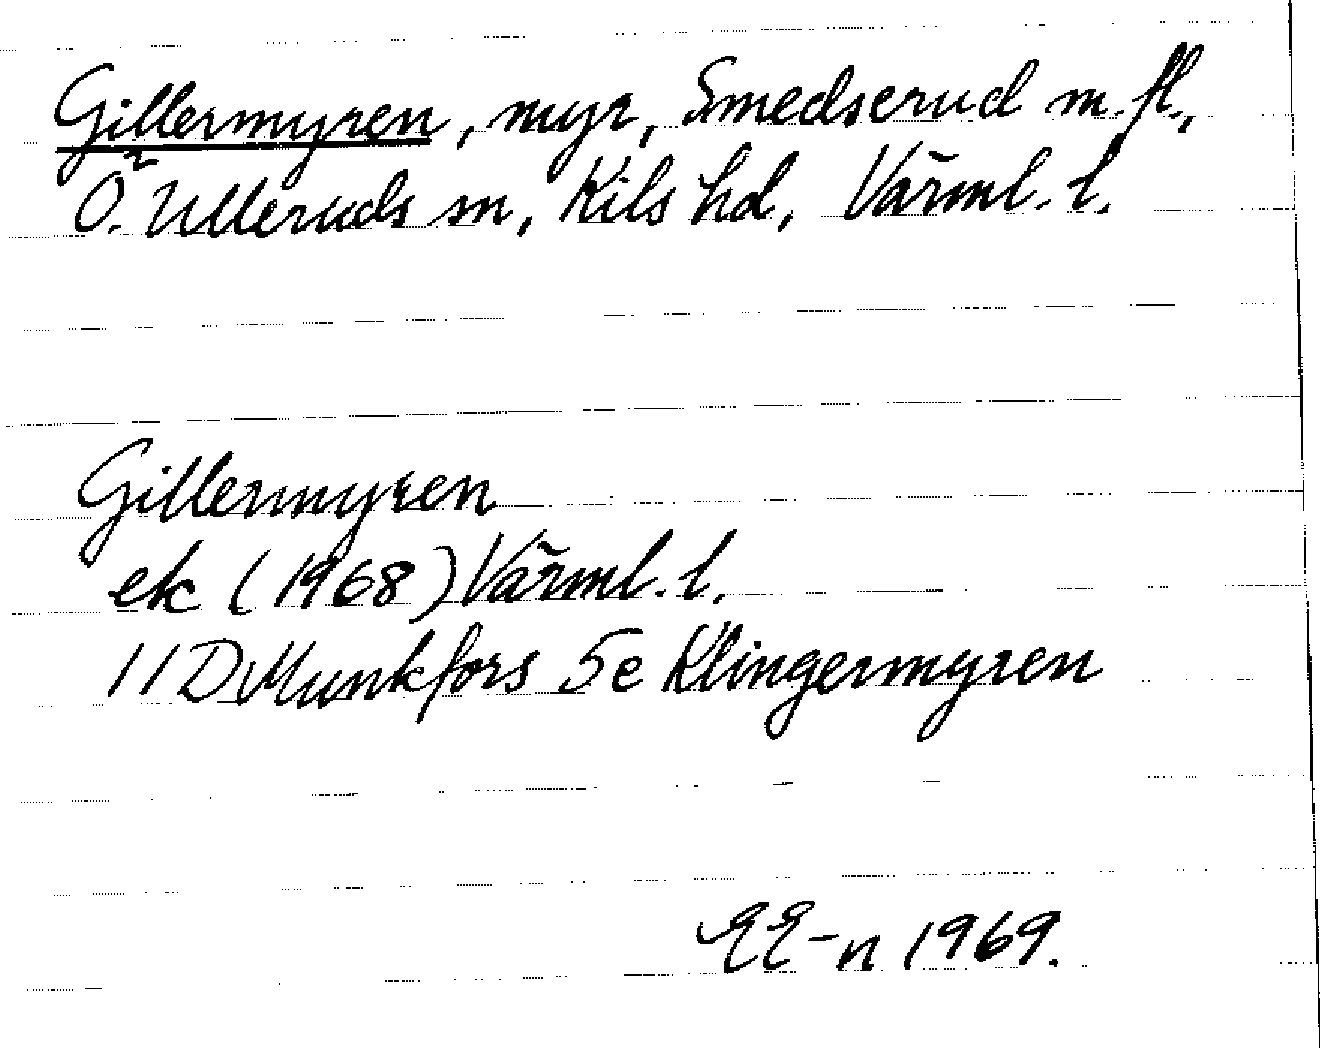 Gillermyren, myr, Smedserud m.fl.,
Ö. Ulleruds sn, Kils hd, Värml. l.
Gillermyren
ek (1968) Värml. l.
11D Munkfors 5e Klingermyren
EE-n 1969.